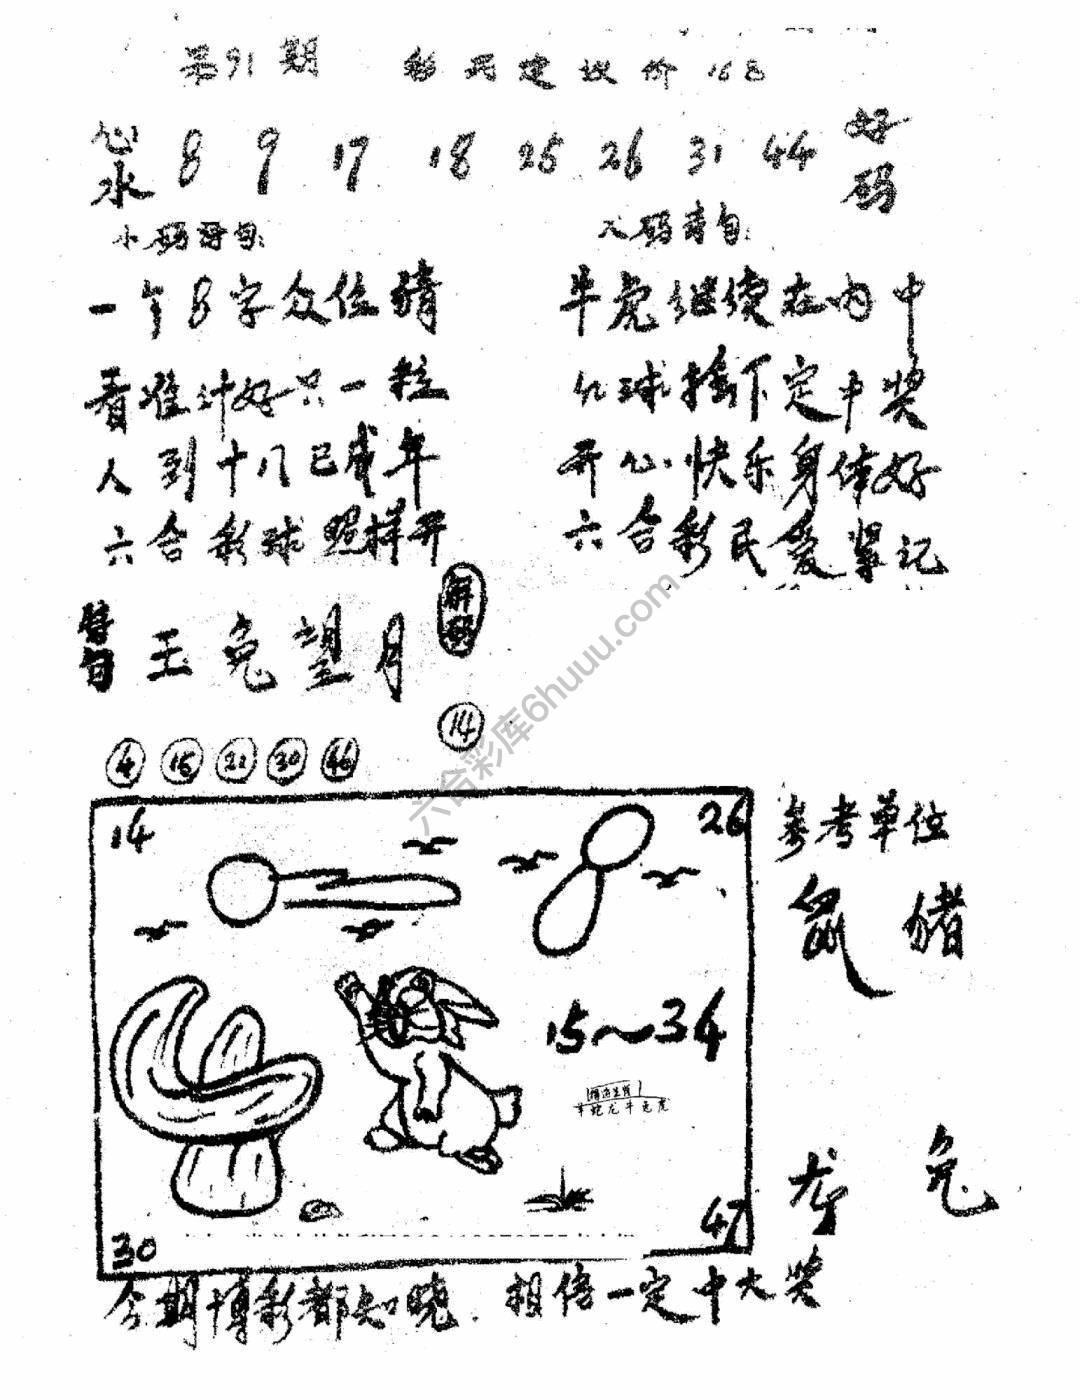 第91期 彩民建议价16
心水 8 9 17 18 25 26 31 44 好码
小码诗句:
一个8字众位猜
看准计好只一粒
人到十八已成年
六合彩球照样开
诗句:
牛虎继续在内中
球 下定中奖
开心快乐身体好
六合彩民爱紧记
玉兔望月
解码
14
4 15 21 30 46
14 26
15~34
30 47
参考单位
鼠 猪
龙 兔
今期博彩都知晓.相信一定中大奖
六合彩库6huuu.com